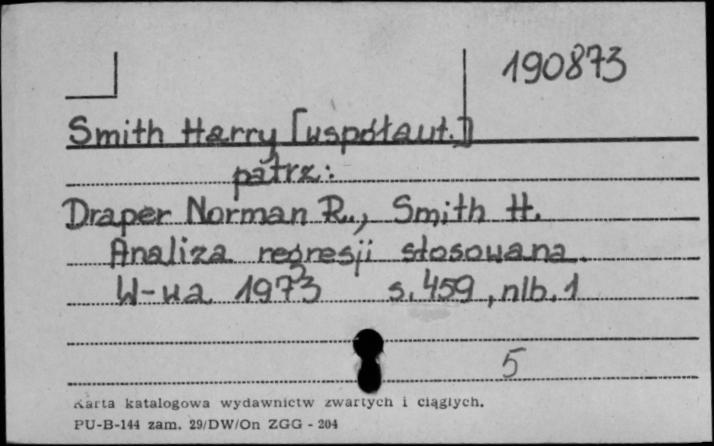 190873
Smith Harry [współaut.]
patrz:
Draper Norman R., Smith H.
Analiza regresji stosowana.
W-wa 1973 s. 459, nlb. 1
5
Karta katalogowa wydawnictw zwartych i ciągłych.
PU-B-144 zam. 29/DW/On ZGG - 204